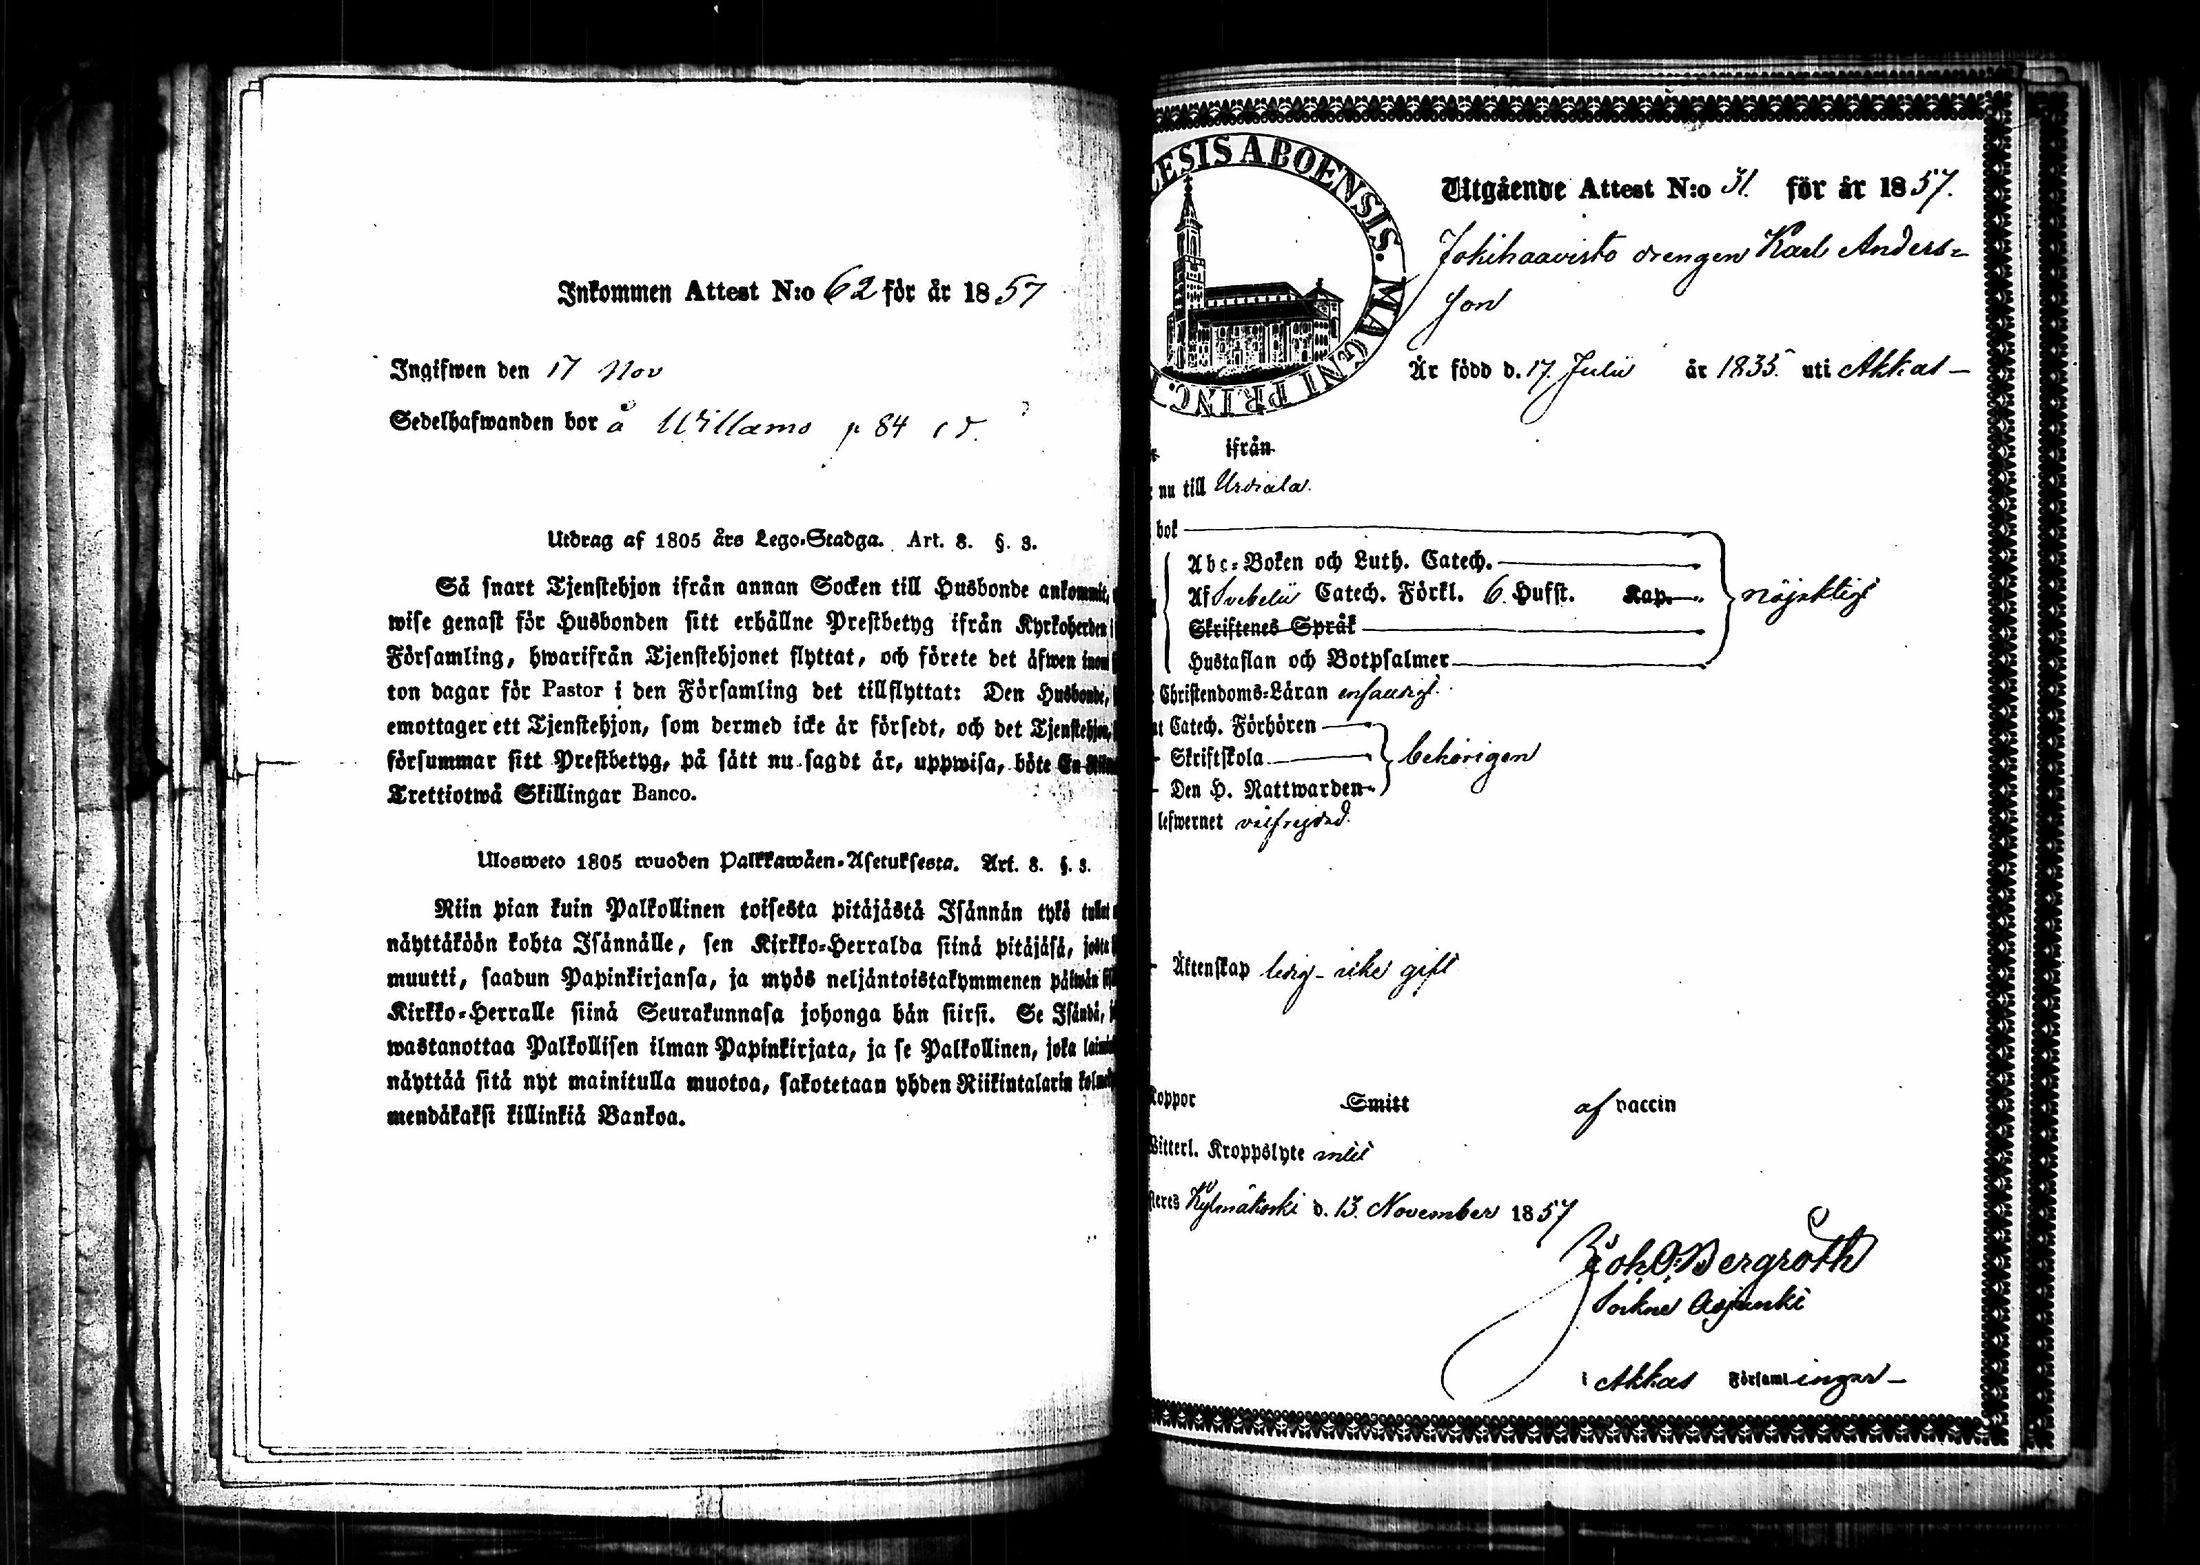 Inkommen Attest N:o 62 för år 1857
Ingifwen den 17 Nov
Sedelhafwanden bor å Willamo p 84
Utdrag af 1805 års Lego-Stadga. Art. 8. §. 3.
Så snart Tjenstehjon ifrån annan Socken till Husbonde ankommit,
wise genast för Husbonden sitt erhållne Prestbetyg ifrån Kyrkoherden i
Församling, hwarifrån Tjenstehjonet flyttat, och förete det äfwen inom
ton dagar för Pastor i den Församling det tillflyttat: Den Husbonde,
emottager ett Tjenstehjon, som dermed icke är försedt, och det Tjenstehjon,
försummar sitt Prestbetyg, på sätt nu sagdt är, uppwisa, böte En
Trettiotwå Skillingar Banco.
Ulosweto 1805 wuoden Palkkawäen-Asetuksesta. Art. 8. §. 3.
Niin pian kuin Palkollinen toisesta pitäjästä Isännän tykö tullut
näyttäköön kohta Isännälle, sen Kirkko-Herralda siinä pitäjäsä, josta
muutti, saadun Papinkirjansa, ja myös neljäntoistakymmenen päiwän
Kirkko-Herralle siinä Seurakunnasa johonga hän siirsi. Se Isändä,
wastanottaa Palkollisen ilman Papinkirjata, ja se Palkollinen, joka
näyttää sitä nyt mainitulla muotoa, sakotetaan yhden Riikintalarin
mendäkaksi killinkiä Bankoa.
ESIS ABOENSIS. MAGNI PRINC.
Utgående Attest N:o 31. för år 1857.
Jokihaavisto drengen Karl Anders-
son
Är född d. 17. Julii år 1835. uti Akkas
ifrån
nu till Urdiala.
bok
Abc-Boken och Luth. Catech.
Af Svebelii Catech. Förkl. 6. Hufst. Kap. nöjaktigt
Skriftenes Språk
Hustaflan och Botpsalmer
Christendoms-Läran enfaldigt.
Catech. Förhören
Skriftskola behörigen
Den H. Nattwarden
lefwernet välfrejdad.
Äktenskap ledig - icke gift
Koppor Smitt af vaccin
Witterl. Kroppslyte intet
Kylmäkoski d. 13. November 1857
Joh. O. Bergroth
Sockne Adjunkt
i Akkas Församlingar